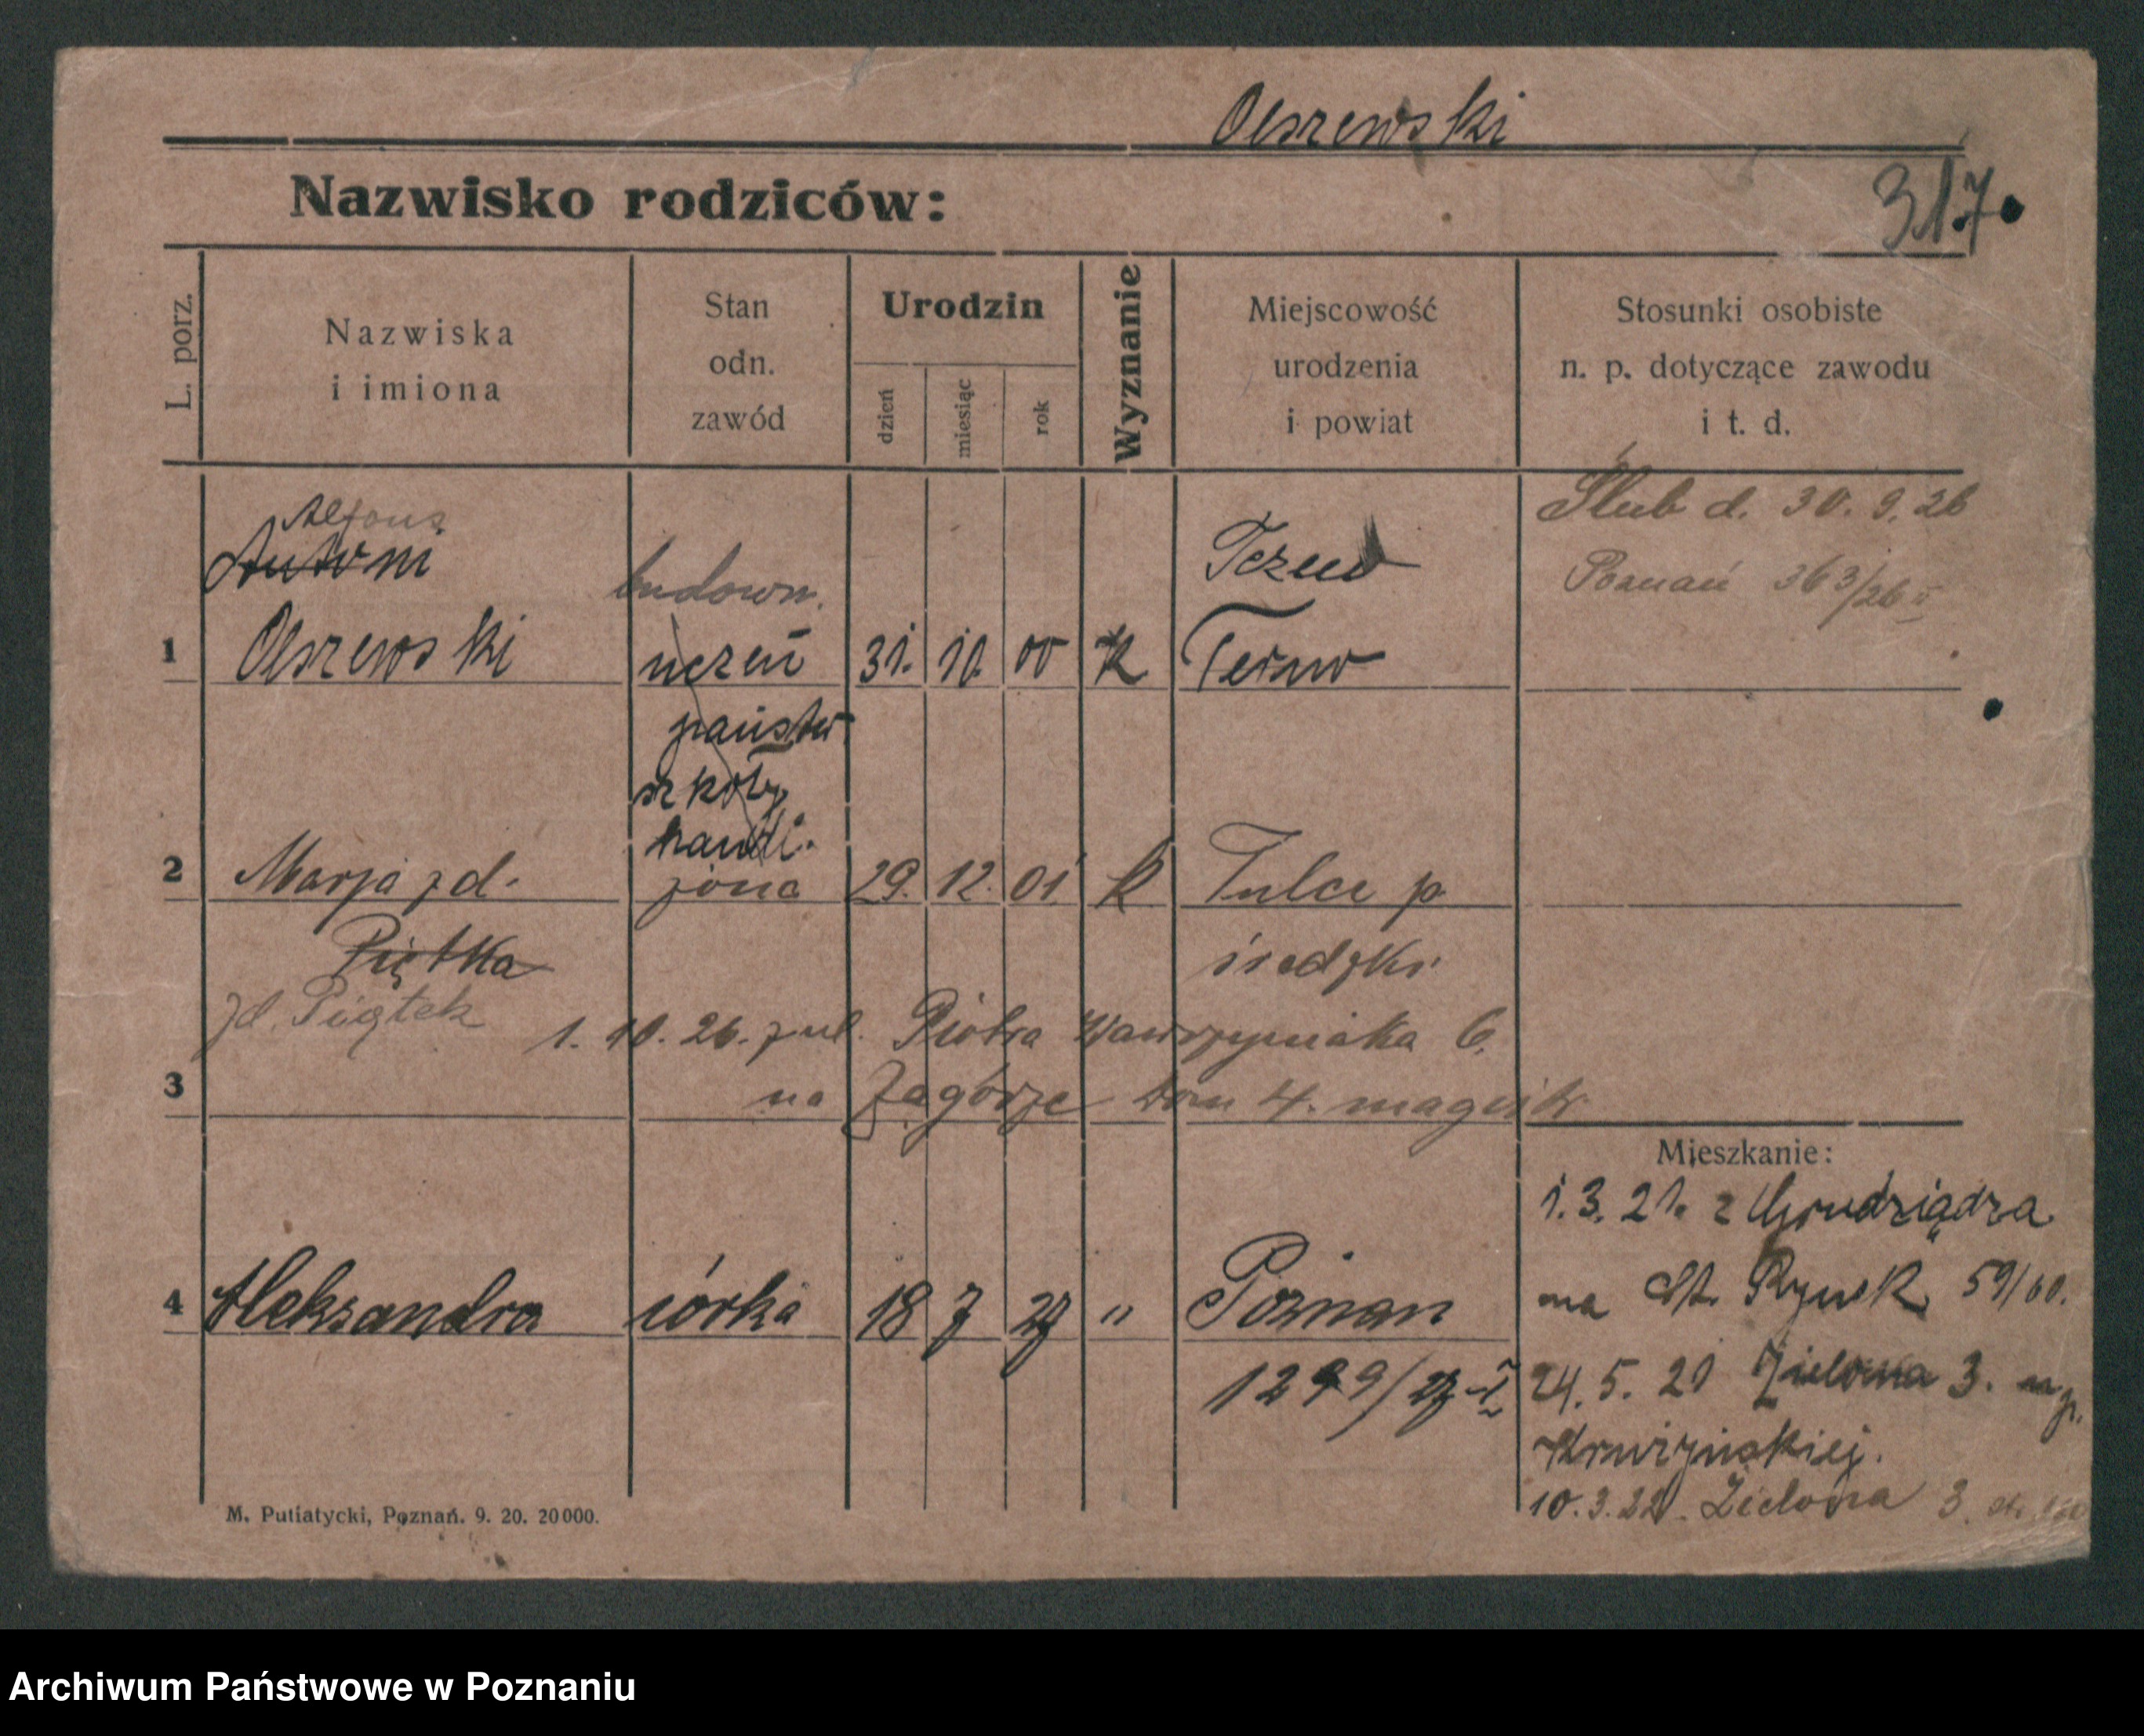 Olszewski
Nazwisko rodziców:
317.
L. porz.
Nazwiska
i imiona
Stan
odn.
zawód
Urodzin
dzień
miesiąc
rok
Wyznanie
Miejscowość
urodzenia
i powiat
Stosunki osobiste
n. p. dotyczące zawodu
i t. d.
Alfons
Antoni
Olszewski
budown.
1
uczeń
31. 10. 00
K
Tczew
Tczew
Ślub d. 30. 9. 26
Poznań 363/26
państw.
szkoły
handl.
2
Marja zd.
żona
29. 12. 01
k
Tulce p
średzki
Piętka
zd. Piątek
1. 10. 26. z ul. Piotra Wawrzyniaka 6.
3
na Zagórze dom 4. magistr
Mieszkanie:
1. 3. 21. z Grudziądza
na St. Rynek 59/60.
24. 5. 21 Zielona 3.
10. 3. 22. Zielona 3.
4
Aleksandra
córka
18 7 27
"
Poznan
1299/27
M. Putiatycki, Poznań. 9. 20. 20000.
Archiwum Państwowe w Poznaniu